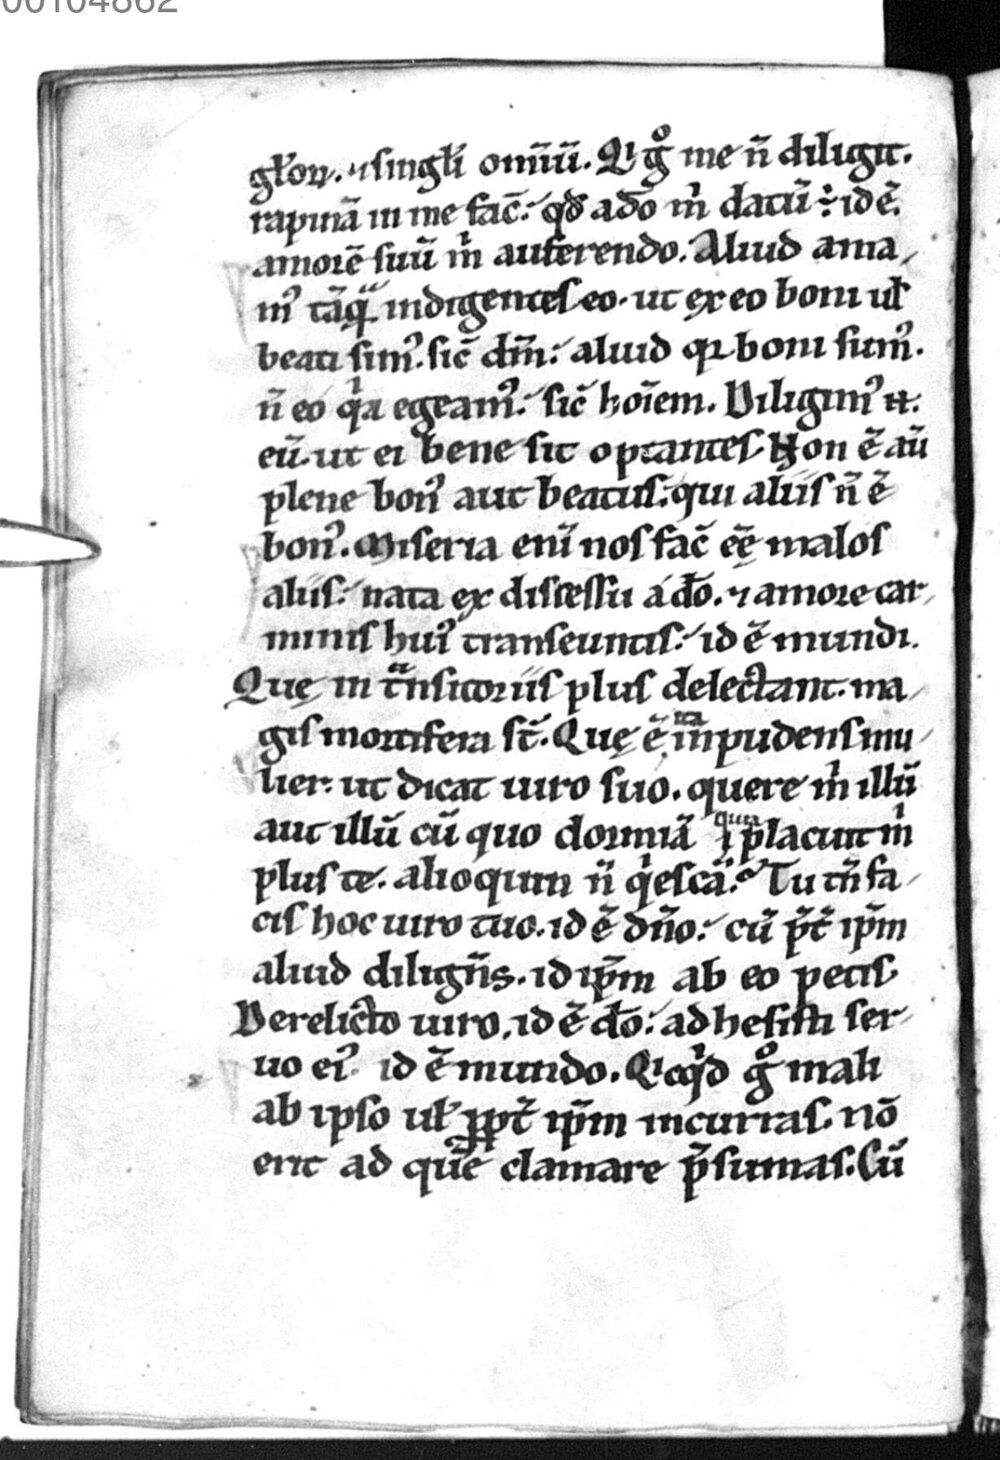 00104862
gl̄oꝝ. ⁊ singl̄i om̄iū. Qi gͦ me n̄ diligit.
rapinā in me fac̄. qđ a đo m̍ datū ÷ id ē.
amorē suū m̍ auferendo. Aliud ama
mꝰ tāqᵃ indigentes eo. ut ex eo boni ul̄
beati simꝰ. sic̄ dm̄. aliud qꝛ boni sumꝰ.
n̄ eo qͥa egeamꝰ. sic̄ hoīem. Diligimꝰ n̄.
eū. ut ei bene sit optantes. Non ē aū
plene bonꝰ aut beatus. qui aliis n̄ ē
bonꝰ. Miseria eni nos fac̄ eē malos
aliis. nata ex discessu a đo. ⁊ amore car
minis huiꝰ transeuntis. id ē mundi.
Quę in tᵃnsitoriis plus delectant. ma
gis mortifera st̄. Quę ē ita inpudens mu
lier. ut dicat uiro suo. quere m̍ illū
aut illū cū quo dormiā quia placuit m̍
plus te. alioquin n̄ qͥescā. Tu tn̄ fa
cis hoc uiro tuo. id ē dn̄o. cū p̄t̄ ip̄m
aliud dilign̄s. id ip̄m ab eo petis
Derelicto uiro, id ē đo. adhesisti ser
uo eiꝰ id ē mundo. Qicqͥd gͦ mali
ab ipso ul̄ ꝓpt̄ ip̄m incurras. nō
erit ad quē clamare p̄sumas. Cū